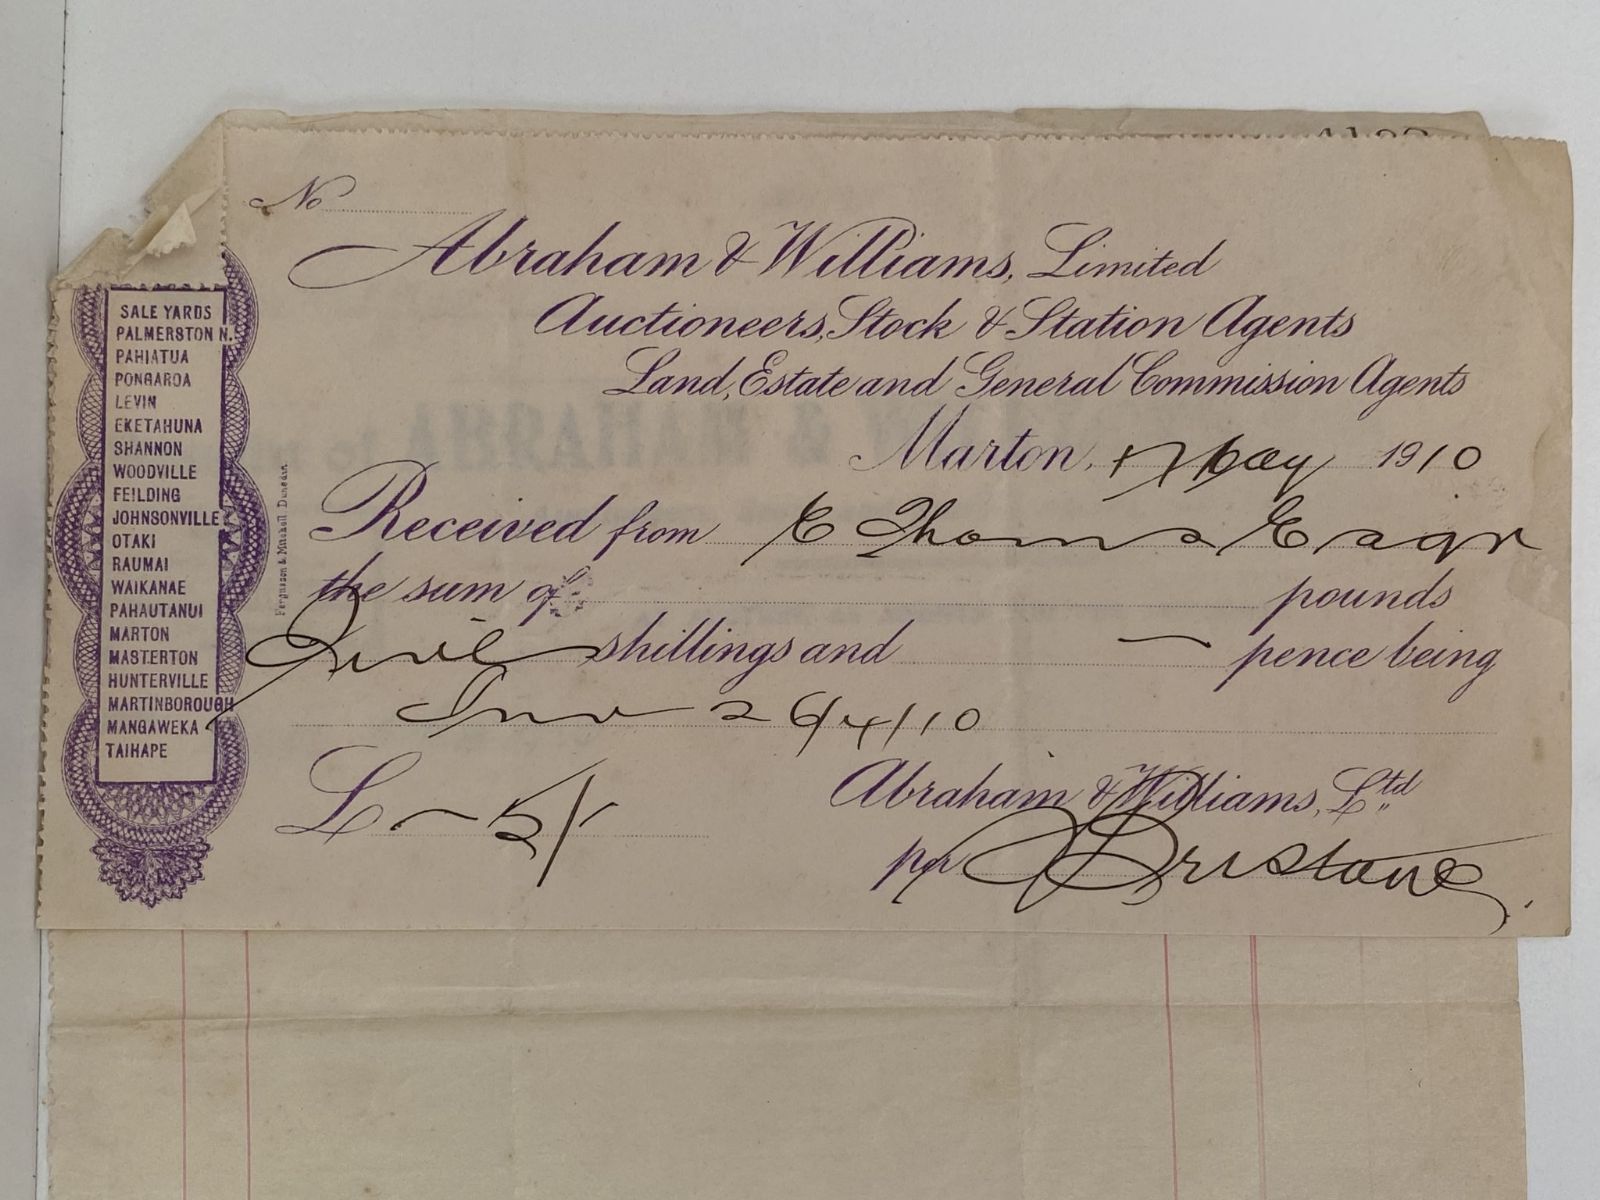 No
Abraham & Williams, Limited
Auctioneers, Stock & Station Agents
Land, Estate and General Commission Agents
Marton, 17 May 1910
Received from E Thomas Esqr
the sum of pounds
Five shillings and — pence being
Inv 26/4/10
£ — 5/-
Abraham & Williams, Ltd
per
SALE YARDS
PALMERSTON N.
PAHIATUA
PONGAROA
LEVIN
EKETAHUNA
SHANNON
WOODVILLE
FEILDING
JOHNSONVILLE
OTAKI
RAUMAI
WAIKANAE
PAHAUTANUI
MARTON
MASTERTON
HUNTERVILLE
MARTINBOROUGH
MANGAWEKA
TAIHAPE
Fergusson & Mitchell, Dunedin.